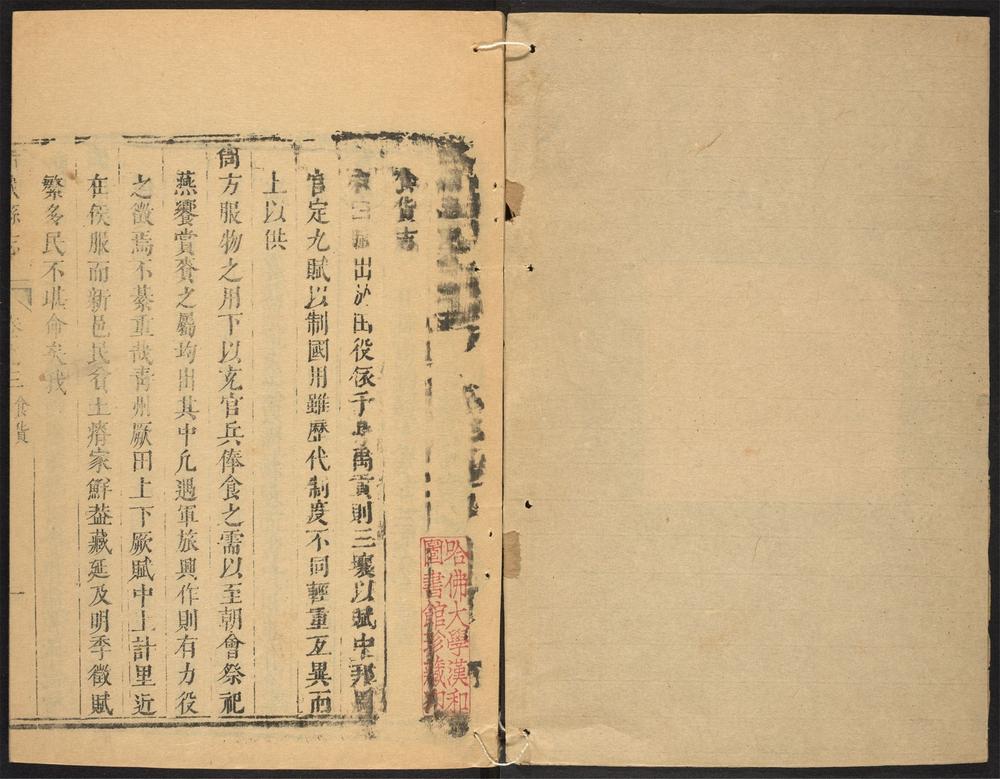 食貨志
出於田役係于身禹貢則三壤以賦中邦周
官定九賦以制國用雖歷代制度不同輕重互異而
上以供
尚方服物之用下以充官兵俸食之需以至朝會祭祀
燕饗賞賚之屬均出其中凢遇軍旅興作則有力役
之徵焉不綦重哉靑州厥田上下厥賦中上計里近
在侯服而新邑民貧土瘠家鮮葢藏延及明季徵賦
繁多民不堪命矣我
縣志 卷之三 食貨 一
哈佛大學漢和
圖書館珍藏印